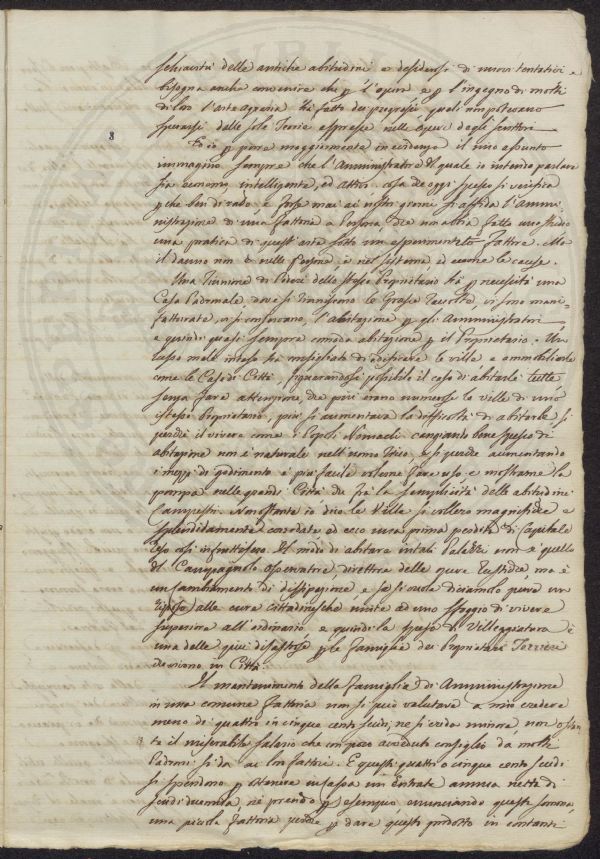 schiavitù delle antiche abitudini e desiderosi di nuovi tentativi e
bisogna anche convenire che p l'opera e p l'ingegno di molti
di loro l'arte agraria ha fatto dei progressi quali non potevano
sperarsi dalle sole Teorie espresse nelle opere degli scrittori
8
Ed io p porre maggiormente in evidenza il mio assunto
immagino sempre che l'Amministratore del quale io intendo parlare
sia economo intelligente, ed attivo cosa che oggi spesso si verifica
p che ben di rado e forse mai ai nostri giorni si affida l'Ammi
nistrazione di una fattoria a Persona, che non abbia fatto
una pratica di quest'arte sotto un esperimentato fattore. Ma
il danno non è nelle persone, è nel sistema, ed eccone le cause.
Una Riunione di Poderi dello stesso Proprietario ha p necessità una
Casa Padronale, dove si riuniscono le Grasce raccolte, vi sono mani-
fatturate, vi si conservano, l'abitazione p gli Amministratori
e quindi quasi sempre comoda abitazione p il Proprietario. Un
lusso male inteso ha consigliato di edificare le ville e ammobiliarle
come le Case di Città, figurandosi possibile il caso di abitarle tutte
senza fare attenzione, che più erano numerose le ville di uno
stesso Proprietario, più si aumentava la difficoltà di abitarle si
perchè il vivere come i Popoli Nomadi cangiando bene spesso di
abitazione non è naturale nell'uomo fisso, e si perchè aumentando
i mezzi di godimento è più facile volerne fare uso e mostrarne la
pompa nelle grandi Città che frà la semplicità delle abitudini
Campestri. Nonostante io dico le Ville si vollero magnifiche e
splendidamente corredate ed ecco una prima perdita di Capitale
reso così infruttifero. Il modo di abitare in tali Palazzi non è quello
del Campagnolo osservatore, direttore delle opere rustiche ma è
un cambiamento di dissipazione, e (se si vuole diciamolo pure un
riposo) alle cure cittadinesche unito ad uno sfoggio di vivere
superiore all'ordinario e quindi la spesa di Villeggiatura è
una delle più disastrose p le famiglie dei Proprietari Terrieri
che vivono in Città.
Il mantenimento della famiglia di Amministrazione
in una comune fattoria non si può valutare a mio credere
meno di quattro in cinque cento scudi, nè si creda minore, non ostan
te il miserabile salario che un poco avveduto consiglio da molti
Padroni si dà ai loro fattori. E questi quattro o cinque cento scudi
si spendono p ottenere in cassa un Entrata annua netta di
scudi duemila, nè prendo p esempio, enunciando questa somma,
una piccola fattoria perchè p dare questo prodotto in contanti